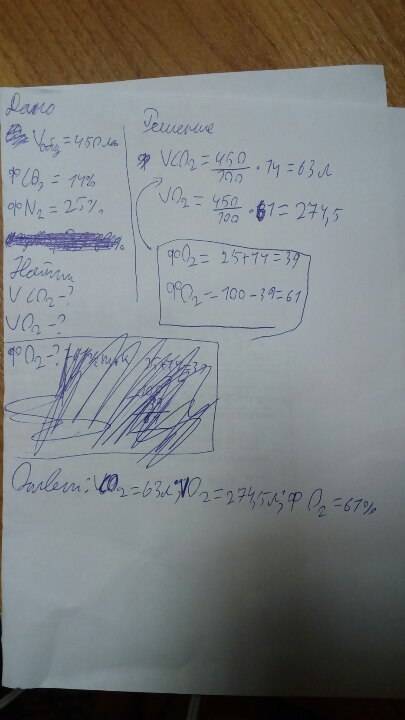 Дано
Vобщ = 450 л
φCO2 = 14%
φN2 = 25%
Найти
VCO2 - ?
VO2 - ?
φO2 - ?
Решение
VCO2 = 450/100 · 14 = 63 л
VO2 = 450/100 · 61 = 274,5
φO2 = 25+14 = 39
φO2 = 100 - 39 = 61
Ответ: VCO2 = 63 л; VO2 = 274,5 л; φO2 = 61%